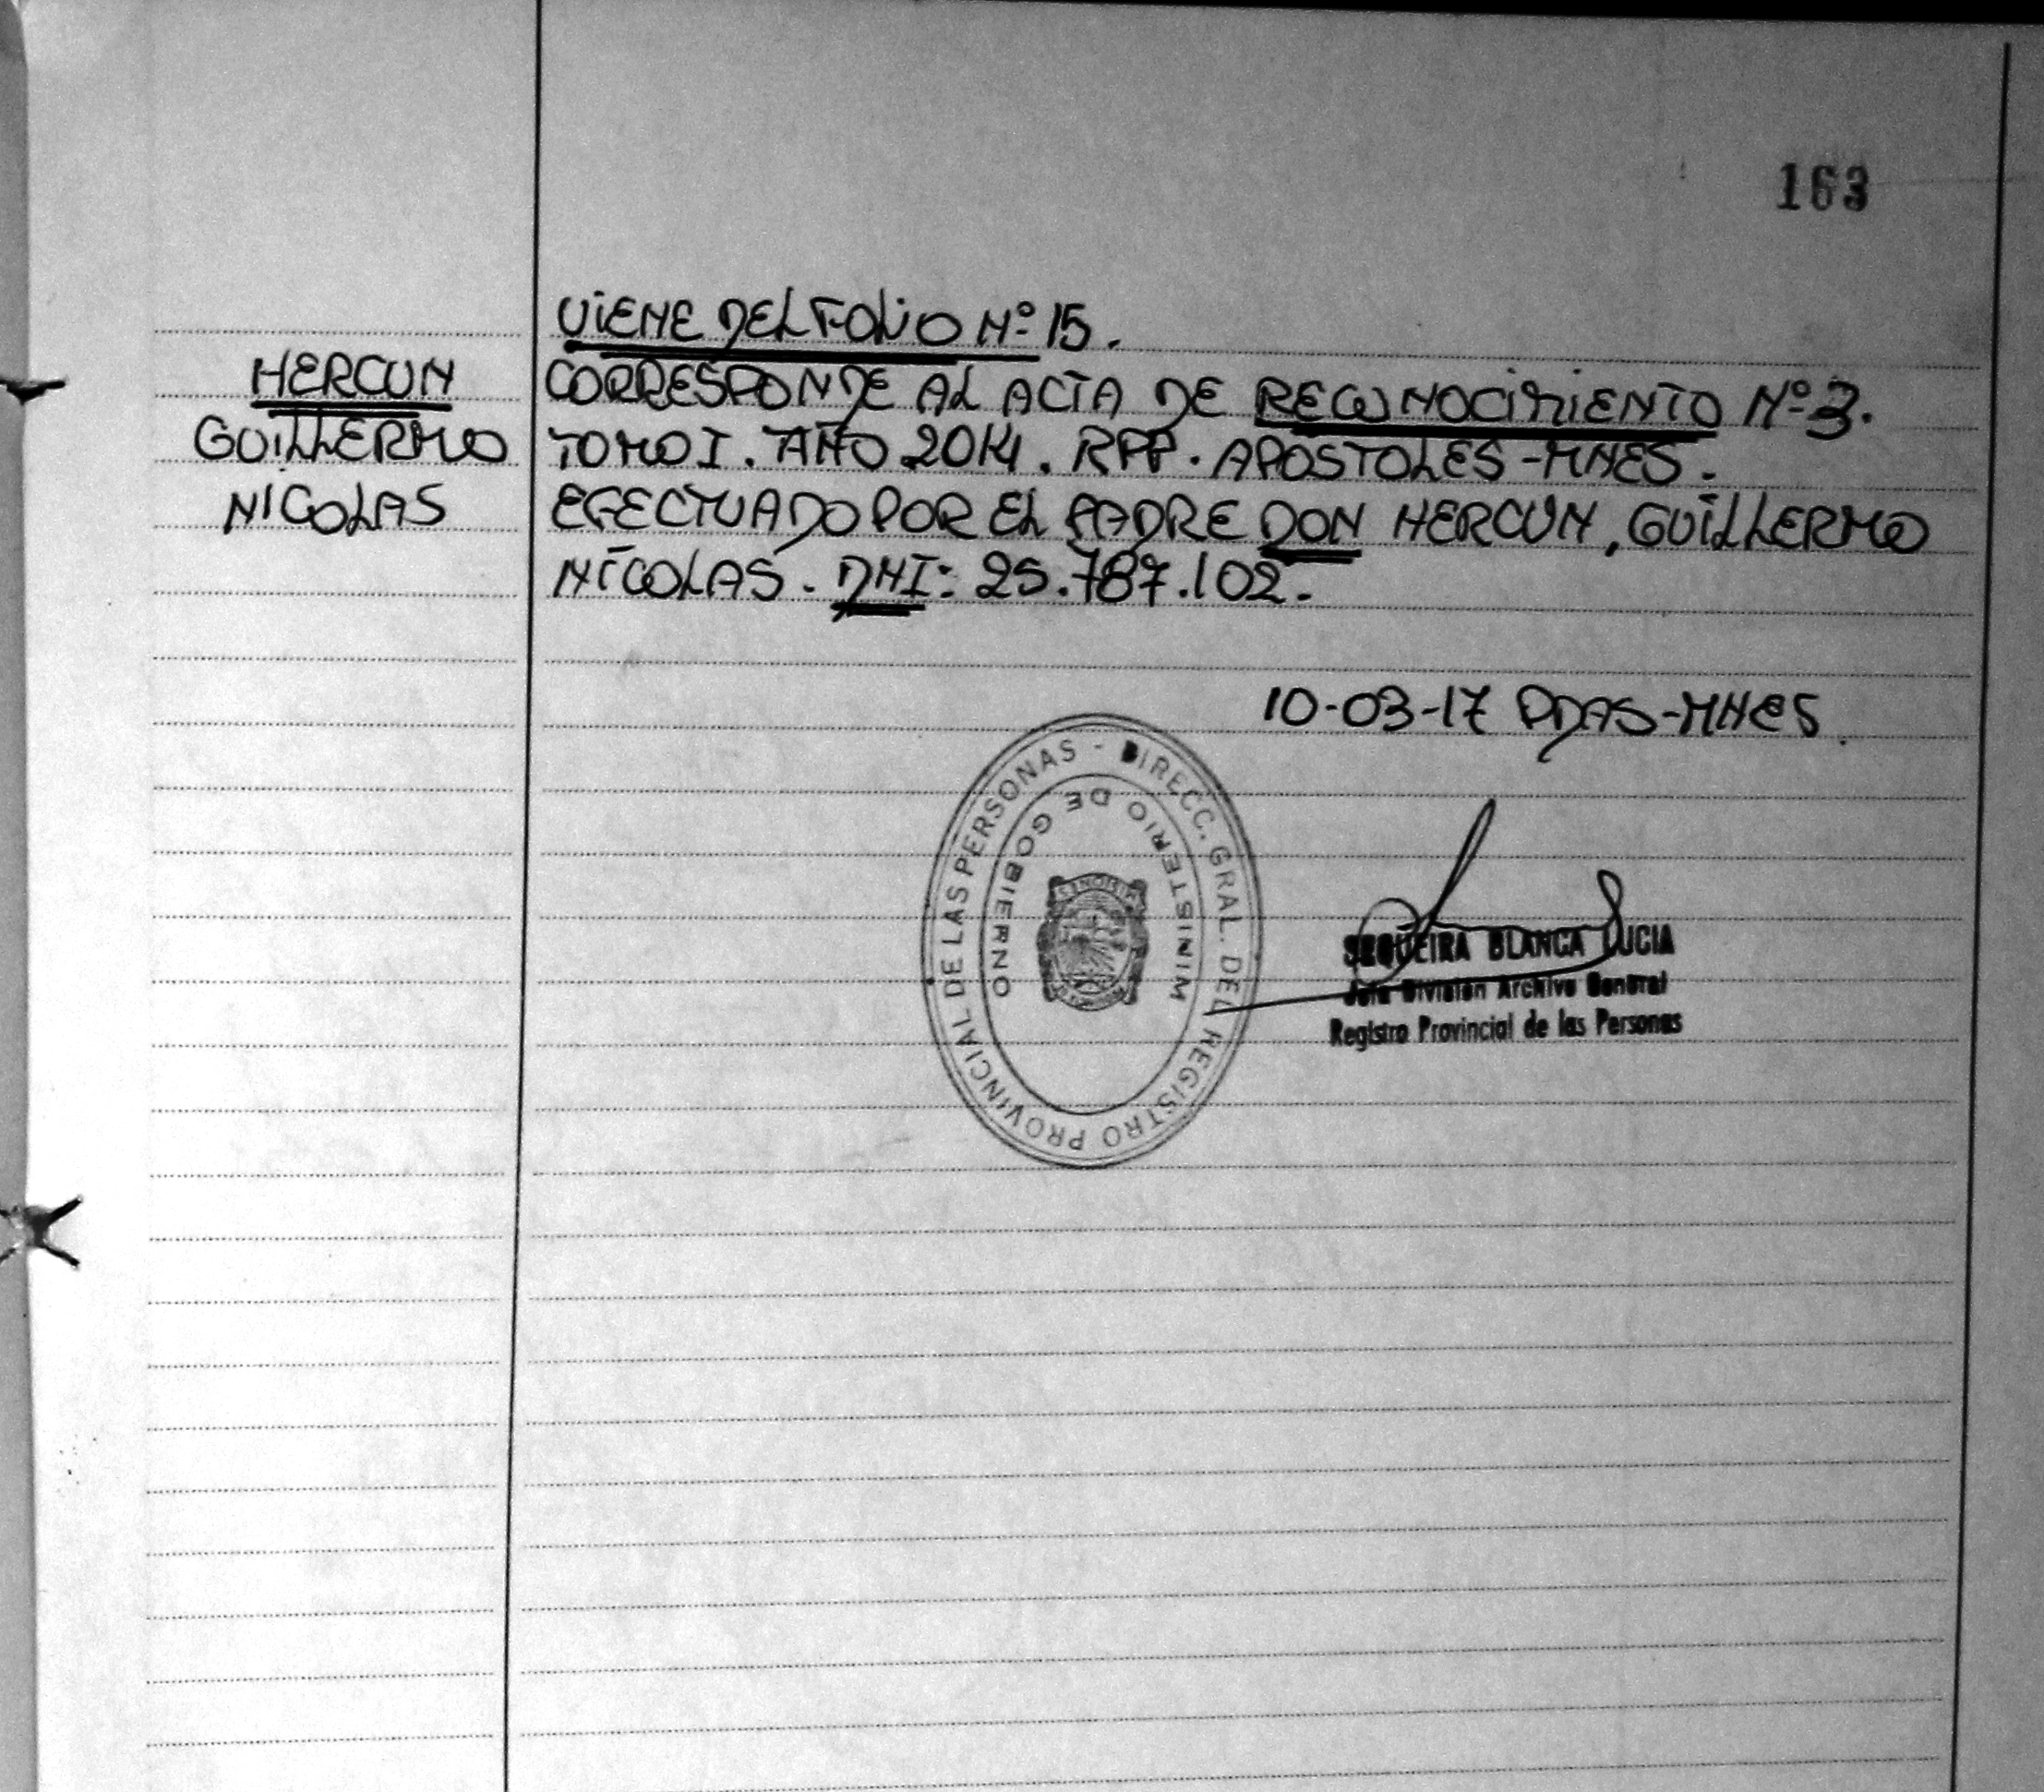 163
VIENE DEL FOLIO Nº 15.
HERCUN
GUILLERMO
NICOLAS
CORRESPONDE AL ACTA DE RECONOCIMIENTO Nº 3.
TOMO I. AÑO 2014. RPP. APOSTOLES-MNES.
EFECTUADO POR EL PADRE DON HERCUN, GUILLERMO
NICOLAS. DNI: 25.787.102.
10-03-17 PDAS-MNES.
DIRECC. GRAL. DEL REGISTRO PROVINCIAL DE LAS PERSONAS -
MINISTERIO DE GOBIERNO
MISIONES
SEQUEIRA BLANCA LUCIA
Jefa Division Archivo General
Registro Provincial de las Personas